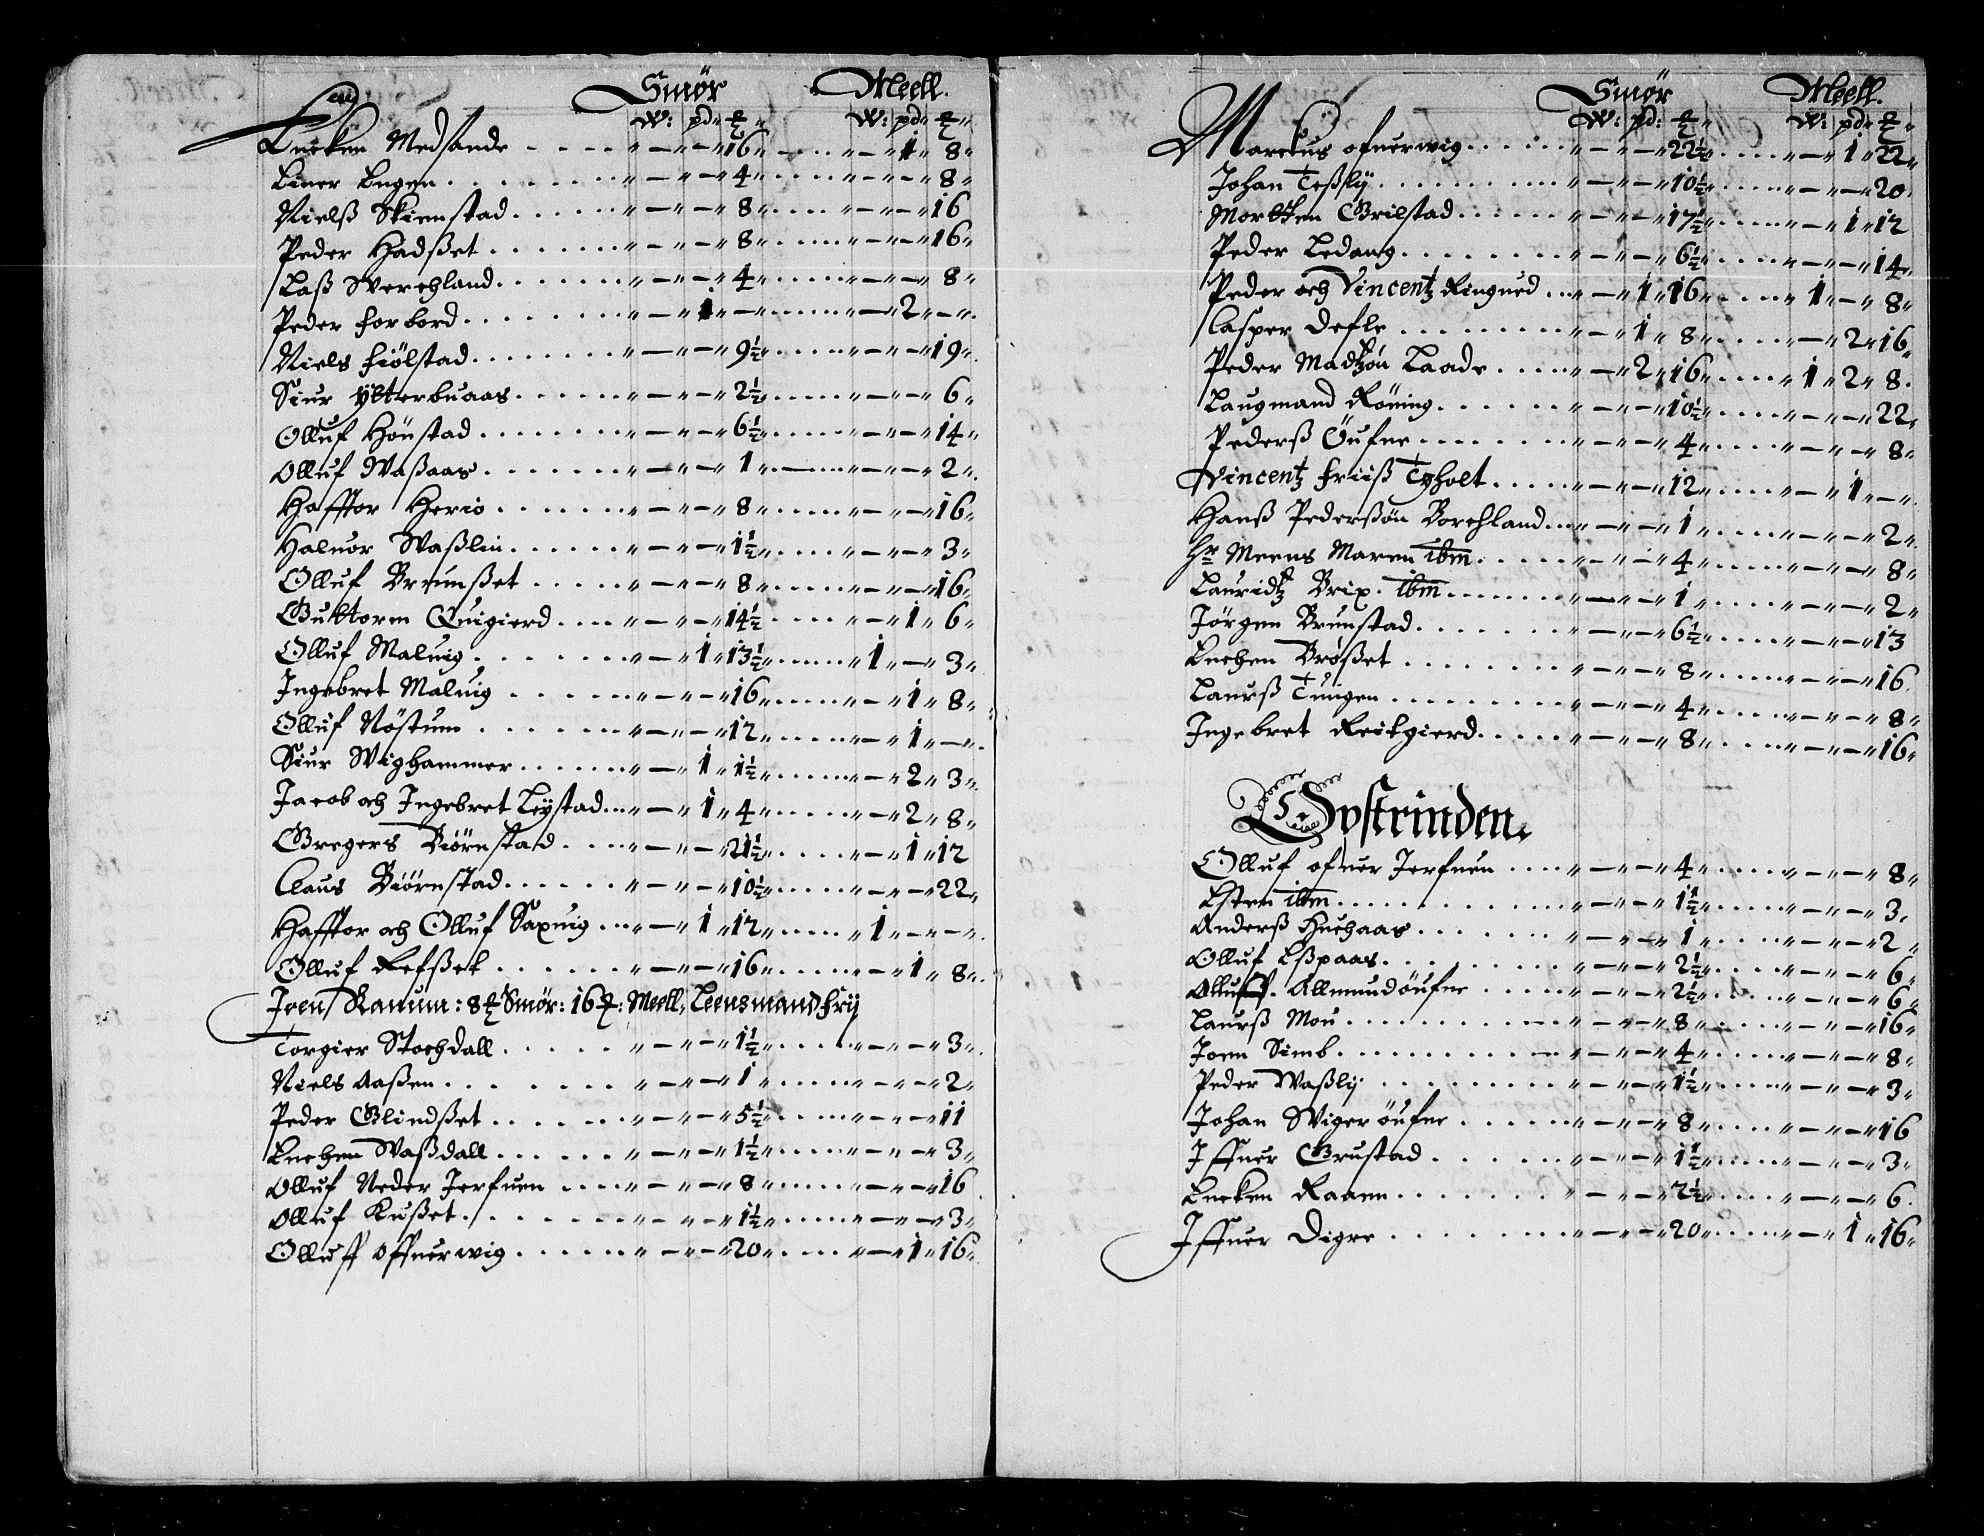 Smør Meell.
W: pd: ℔ W: pd: ℔
Lucken Medsande .... „ — „ — „ 16 „ .... „ — „ 1 „ 8 „
Einer Engen .... „ — „ — „ 4 „ .... „ — „ — „ 8 „
Nielß Skienstad .... „ — „ — „ 8 „ .... „ — „ — „ 16
Peder Hadsßet .... „ — „ — „ 8 „ .... „ — „ — „ 16 „
Laß Werchland .... „ — „ — „ 4 „ .... „ — „ — „ 8 „
Peder Forbord .... „ — „ 1 „ — „ .... „ — „ 2 „ — „
Niels Fiölstad .... „ — „ — „ 9½ „ .... „ — „ — „ 19 „
Siur Ytterbuaas .... „ — „ — „ 2½ „ .... „ — „ — „ 6 „
Olluf Hönstad .... „ — „ — „ 6½ „ .... „ — „ — „ 14 „
Olluf Waßaas .... „ — „ — „ 1 „ .... „ — „ — „ 2 „
Hafftor Herio .... „ — „ — „ 8 „ .... „ — „ — „ 16 „
Haluor Waßlin .... „ — „ — „ 1½ „ .... „ — „ — „ 3 „
Olluf Brunßet .... „ — „ — „ 8 „ .... „ — „ — „ 16 „
Guttorm Quigierd .... „ — „ — „ 14½ .... „ — „ 1 „ 6 „
Olluf Maluig .... „ — „ 1 „ 13½ „ .... „ 1 „ — „ 3 „
Ingebret Maluig .... „ — „ — „ 16 „ .... „ — „ 1 „ 8 „
Olluf Nöstum .... „ — „ — „ 12 „ .... „ — „ 1 „ — „
Siur Wighammer .... „ — „ 1 „ 1½ „ .... „ — „ 2 „ 3 „
Jacob och Ingebret Leystad .... „ — „ 1 „ 4 „ .... „ — „ 2 „ 8 „
Gregers Biörnstad .... „ — „ — „ 21½ „ .... „ — „ 1 „ 12
Claus Biörnstad .... „ — „ — „ 10½ „ .... „ — „ — „ 22 „
Hafftor och Olluf Saxuig .... „ — „ 1 „ 12 „ .... „ 1 „ — „ — „
Olluf Refßet .... „ — „ — „ 16 „ .... „ — „ 1 „ 8 „
Joen Ranum: 8 ℔ Smør: 16 ℔: Meell, Leensmand Frij
Torgier Stochdall .... „ — „ — „ 1½ „ .... „ — „ — „ 3 „
Niels Aaßen .... „ — „ — „ 1 „ .... „ — „ — „ 2 „
Peder Glindßet .... „ — „ — „ 5½ „ .... „ — „ — „ 11
Luchen Waßdall .... „ — „ — „ 1½ „ .... „ — „ — „ 3 „
Olluf Neder Jerfuen .... „ — „ — „ 8 „ .... „ — „ — „ 16
Olluf Kußet .... „ — „ — „ 1½ „ .... „ — „ — „ 3 „
Olluff offuerwig .... „ — „ — „ 20 „ .... „ — „ 1 „ 16 „
Smør Meell.
W: pd: ℔ W: pd: ℔
Marckus ofuerwig .... „ — „ — „ 22½ „ .... „ — „ 1 „ 22 „
Johan Teßlij .... „ — „ — „ 10½ „ .... „ — „ — „ 20 „
Mortten Grilstad .... „ — „ — „ 17½ „ .... „ — „ 1 „ 12
Peder Ledang .... „ — „ — „ 6½ „ .... „ — „ — „ 14 „
Peder och Vincentz Ringued .... „ — „ 1 „ 16 „ .... „ 1 „ — „ 8 „
Casper Defle .... „ — „ 1 „ 8 „ .... „ — „ 2 „ 16 „
Peder Madtzön Laade .... „ — „ 2 „ 16 „ .... „ 1 „ 2 „ 8 .
Laugmand Röning .... „ — „ — „ 10½ „ .... „ — „ — „ 22 „
Pederß Öufne .... „ — „ — „ 4 „ .... „ — „ — „ 8 „
Vincentz Friiß Tyholt .... „ — „ — „ 12 „ .... „ — „ 1 „ — „
Hanß Pederßön Borchland .... „ — „ — „ 1 „ .... „ — „ — „ 2 „
Hr Meens Maren ibm .... „ — „ — „ 4 „ .... „ — „ — „ 8 „
Lauridtz Brix. ibm .... „ — „ — „ 1 „ .... „ — „ — „ 2 „
Jörgen Brunstad .... „ — „ — „ 6½ „ .... „ — „ — „ 13
Luchen Brøßet .... „ — „ — „ 8 „ .... „ — „ — „ 16 .
Laurß Tungen .... „ — „ — „ 4 „ .... „ — „ — „ 8 „
Ingebret Reitgierd .... „ — „ — „ 8 „ .... „ — „ — „ 16 „
Systrinden.
Olluf ofuer Jerfuen .... „ — „ — „ 4 „ .... „ — „ — „ 8 „
Esten ibm .... „ — „ — „ 1½ „ .... „ — „ — „ 3 .
Anderß Huchaas .... „ — „ — „ 1 „ .... „ — „ — „ 2 „
Olluf Eßpaas .... „ — „ — „ 2½ „ .... „ — „ — „ 6 „
Olluff. Allmundöufne .... „ — „ — „ 2½ „ .... „ — „ — „ 6 „
Laurß Mou .... „ — „ — „ 8 „ .... „ — „ — „ 16 „
Joen Simb .... „ — „ — „ 4 „ .... „ — „ — „ 8 „
Peder Waßlij .... „ — „ — „ 1½ „ .... „ — „ — „ 3 „
Johan Wiger öufne .... „ — „ — „ 8 „ .... „ — „ — „ 16
Iffuer Grustad .... „ — „ — „ 1½ „ .... „ — „ — „ 3 „
Lucken Raaen .... „ — „ — „ 2½ „ .... „ — „ — „ 6 .
Iffuer Digre .... „ — „ — „ 20 „ .... „ — „ 1 „ 16 „